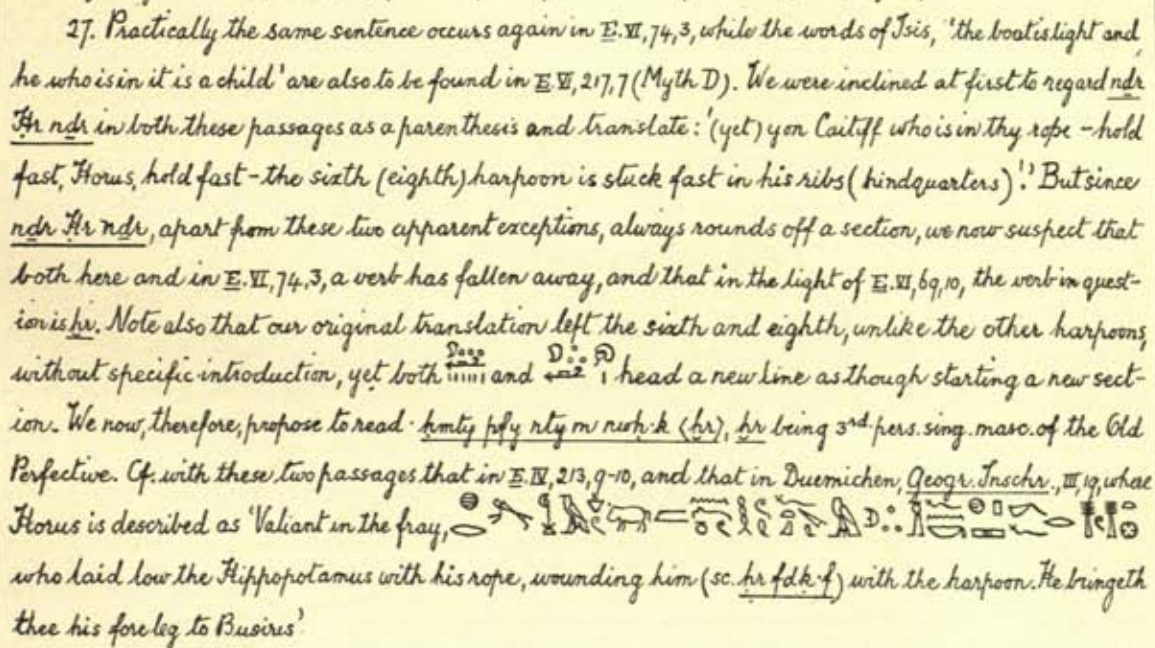 27. Practically the same sentence occurs again in E.VI,74,3, while the words of Isis, 'the boat is light and
he who is in it is a child' are also to be found in E.VI,217,7 (Myth D). We were inclined at first to regard nḏr
Ḥr nḏr in both these passages as a parenthesis and translate: '(yet) yon Caitiff who is in thy rope – hold
fast, Horus, hold fast – the sixth (eighth) harpoon is stuck fast in his ribs (hindquarters)!' But since
nḏr Ḥr nḏr, apart from these two apparent exceptions, always rounds off a section, we now suspect that
both here and in E.VI,74,3, a verb has fallen away, and that in the light of E.VI,69,10, the verb in quest-
ion is ḫr. Note also that our original translation left the sixth and eighth, unlike the other harpoons,
without specific introduction, yet both and head a new line as though starting a new sect-
ion. We now, therefore, propose to read · ḫmty pfy nty m nwḥ·k (ḫr), ḫr being 3rd pers. sing. masc. of the Old
Perfective. Cf. with these two passages that in E.IV,213,9-10, and that in Duemichen, Geogr. Inschr., III,19, where
Horus is described as 'Valiant in the fray,
who laid low the Hippopotamus with his rope, wounding him (sc. ḥr fdḳ·f) with the harpoon. He bringeth
thee his foreleg to Busirus'